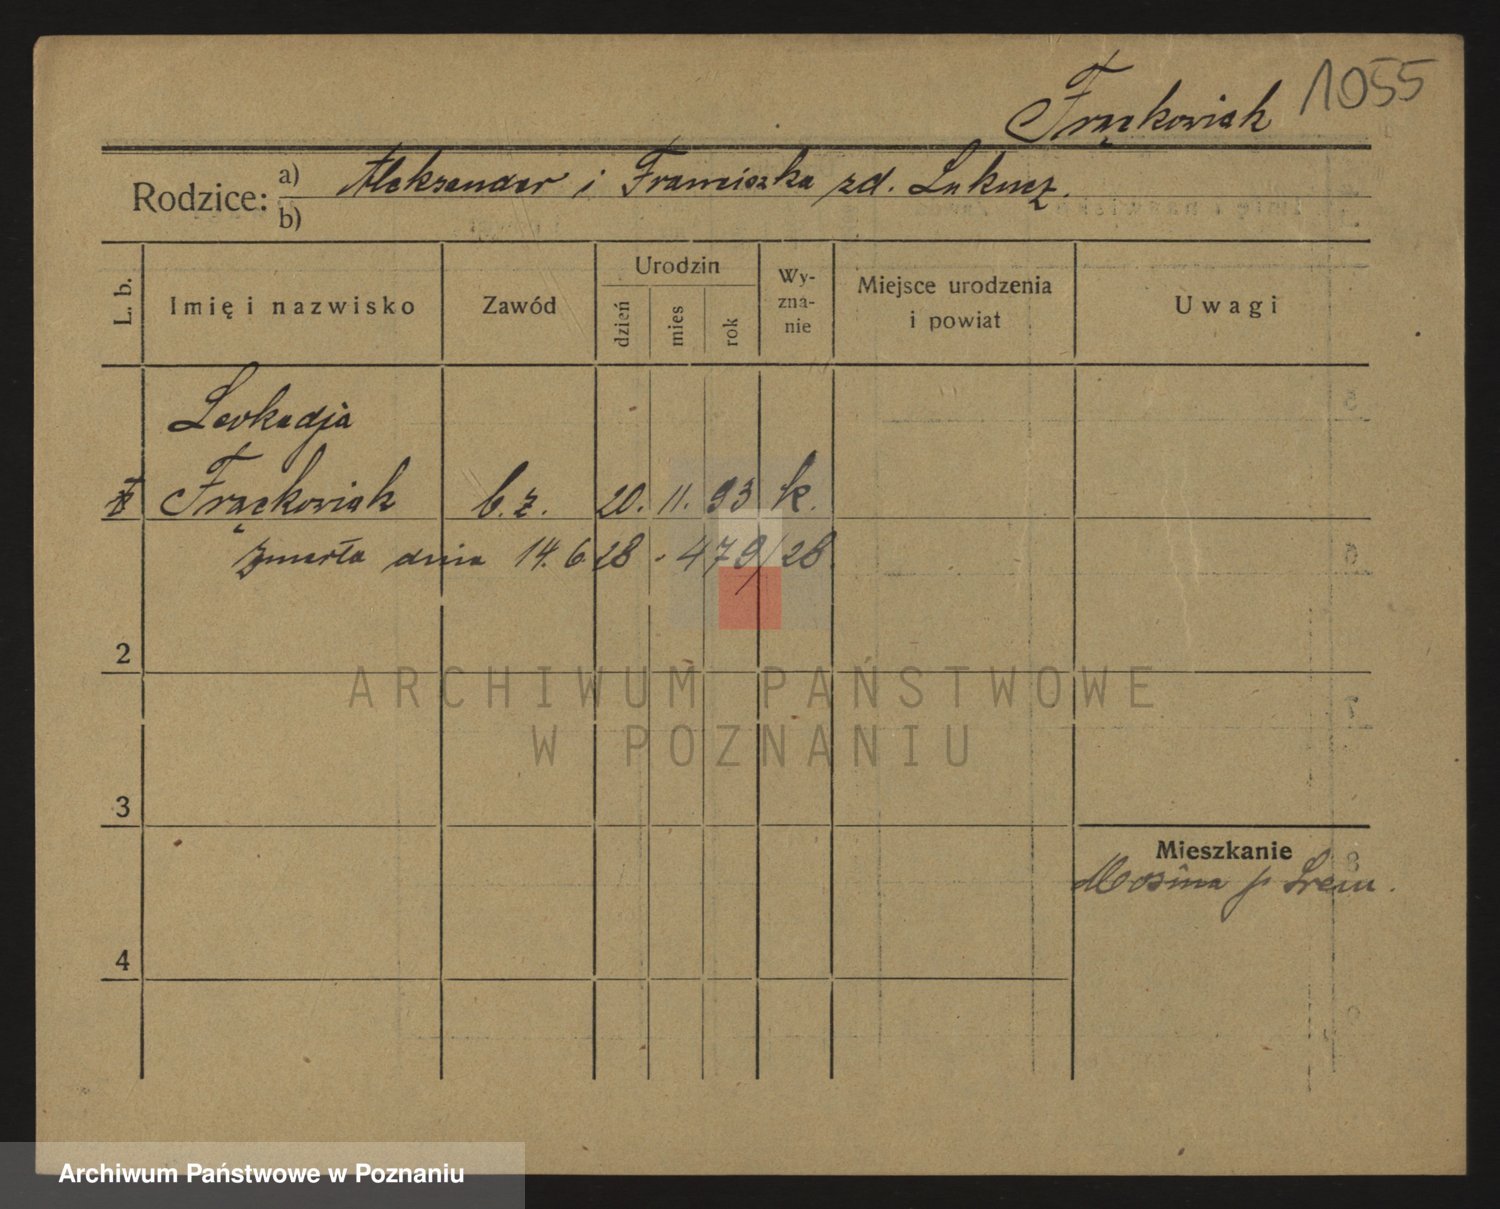 Frąckowiak 1055
Rodzice: a) Aleksander i Franciszka zd.
b)
L. b. Imię i nazwisko Zawód Urodzin dzień mies rok Wyznanie Miejsce urodzenia i powiat Uwagi
Leokadja
Frąckowiak b. z. 20. 11. 93 k.
zmarła dnia 14. 6 28 - 479/28.
2
ARCHIWUM PAŃSTWOWE
W POZNANIU
3
Mieszkanie
Mosina p Śrem.
4
Archiwum Państwowe w Poznaniu